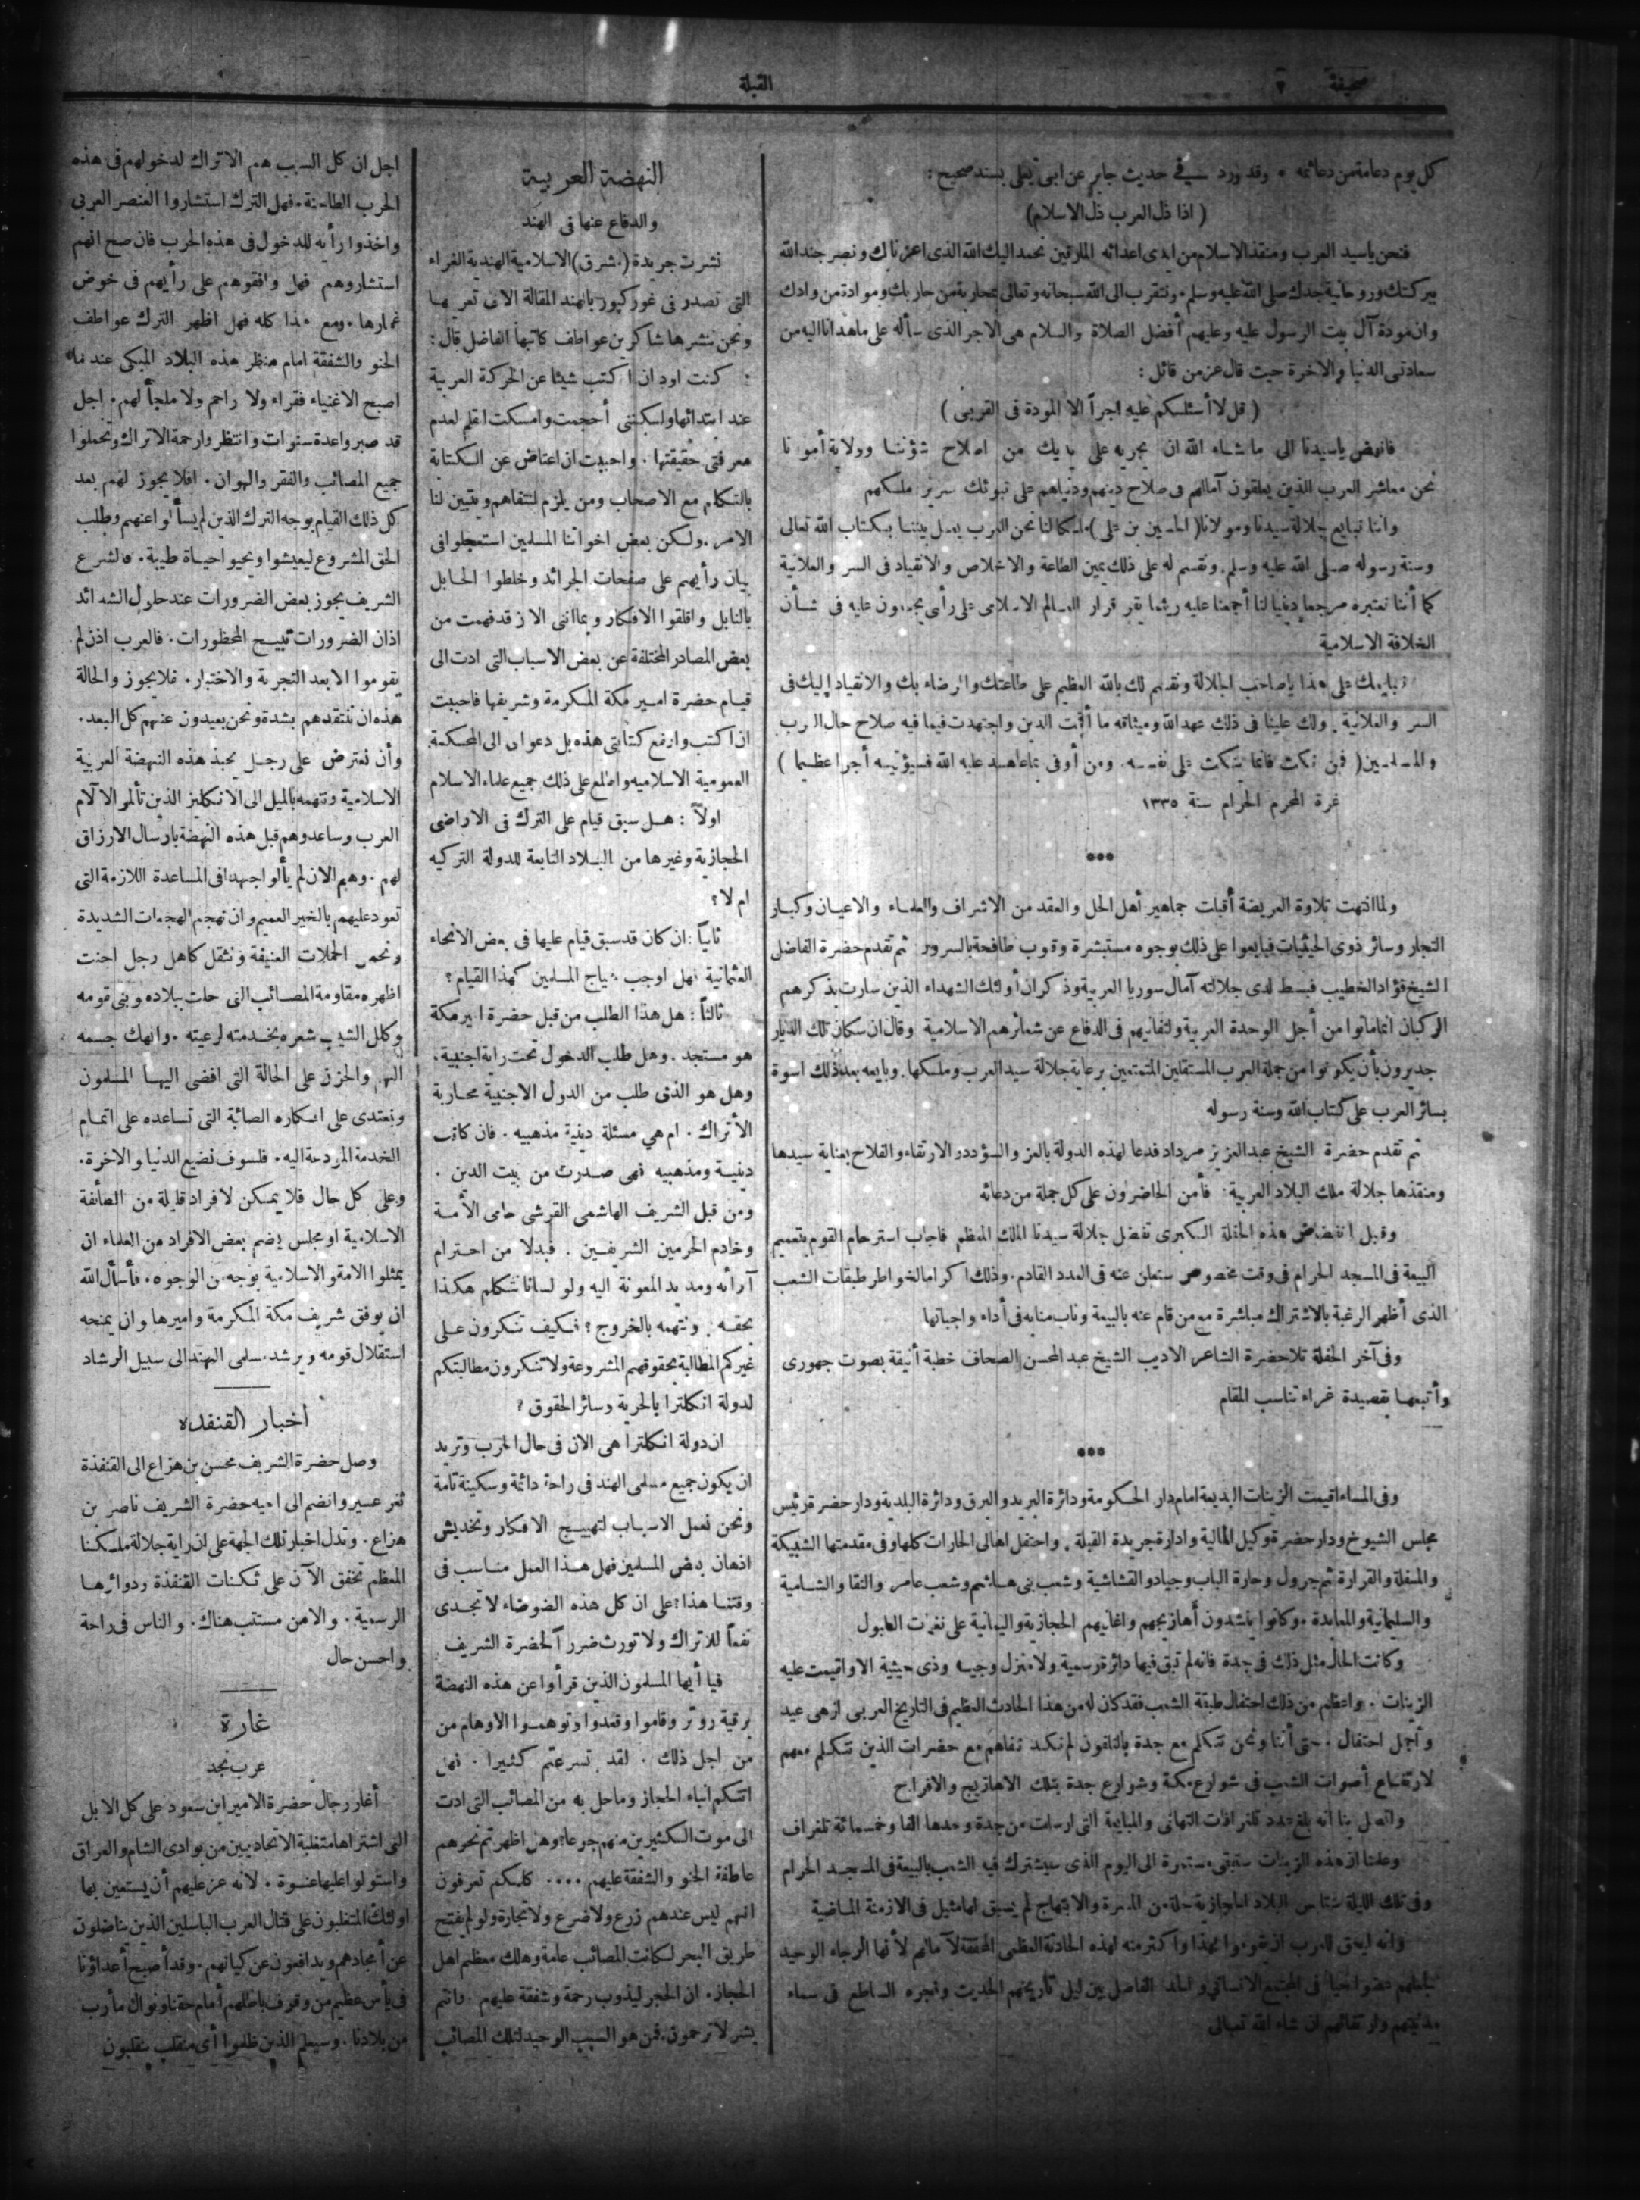 صحيفة ٢
القبلة
كل يوم دعامة من دعائمه ٠ وقد ورد في حديث جابر عن ابي يعلى بسند صحيح :
( اذا ذل العرب ذل الاسلام )
فنحن ياسيد العرب ومنقذ الاسلام من ايدى اعدائه المارقين نحمد اليك الله الذى اعزنا بك ونصر جند الله
ببركتك وروحانية جدك صلى الله عليه وسلم ٠ ونتقرب الى الله سبحانه وتعالى بمحاربة من حاربك وموادة من وادك
وان مودة آل بيت الرسول عليه وعليهم أفضل الصلاة والسلام هى الاجر الذى سأله على ماهدانا اليه من
سعادتى الدنيا والاخرة حيث قال عز من قائل :
( قل لا أسئلكم عليه اجراً الا المودة فى القربى )
فانهض ياسيدنا الى ماشاء الله ان يجريه على يديك من اصلاح شؤننا وولاية أمورنا
نحن معاشر العرب الذين يعلقون آمالهم فى صلاح دينهم ودنياهم على تبوئك سرير ملكهم
واننا نبايع جلالة سيدنا ومولانا ( الحسين بن على ) ملكا لنا نحن العرب يعمل بيننا بكتاب الله تعالى
وسنة رسوله صلى الله عليه وسلم . ونقسم له على ذلك يمين الطاعة والاخلاص والانقياد فى السر والعلانية
كما أننا نعتبره مرجعا دينيا لنا أجمعنا عليه ريثما يقر قرار العالم الاسلامى على رأى يجمعون عليه فى شأن
الخلافة الاسلامية
نبايعك على هذا ياصاحب الجلالة ونقسم لك بالله العظيم على طاعتك والرضاء بك والانقياد إليك فى
السر والعلانية . ولك علينا فى ذلك عهد الله وميثاقه ما أقمت الدين واجتهدت فيما فيه صلاح حال العرب
والمسلمين ( فمن نكث فانما ينكث على نفسه . ومن أوفى بما عاهد عليه الله فسيؤتيه أجرا عظيما )
غرة المحرم الحرام سنة ١٣٣٥
***
ولما انتهت تلاوة العريضة أقبلت جماهير أهل الحل والعقد من الاشراف والعلماء والاعيان وكبار
التجار وسائر ذوى الحيثيات فبايعوا على ذلك بوجوه مستبشرة وقلوب طافحة بالسرور ثم تقدم حضرة الفاضل
الشيخ فؤاد الخطيب فبسط لدى جلالته آمال سوريا العربية وذكر ان أولئك الشهداء الذين سارت بذكرهم
الركبان انما ماتوا من أجل الوحدة العربية ولتفانيهم فى الدفاع عن شعائرهم الاسلامية وقال ان سكان تلك الديار
جديرون بأن يكونوا من جملة العرب المستقلين المتمتعين برعاية جلالة سيد العرب وملكها . وبايعه بعد ذلك اسوة
بسائر العرب على كتاب الله وسنة رسوله
ثم تقدم حضرة الشيخ عبد العزيز مرداد فدعا لهذه الدولة بالعز والسؤدد والارتقاء والفلاح بعناية سيدها
ومنقذها جلالة ملك البلاد العربية : فأمن الحاضرون على كل جملة من دعائه
وقبل انفضاض هذه الحفلة الكبرى تفضل جلالة سيدنا الملك المعظم فاجاب استرحام القوم بتعميم
البيعة فى المسجد الحرام فى وقت مخصوص سنعلن عنه فى العدد القادم ٠ وذلك اكراما لخواطر طبقات الشعب
الذى أظهر الرغبة بالاشتراك مباشرة مع من قام عنه بالبيعة وناب منابه فى أداء واجباتها
وفى آخر الحفلة تلا حضرة الشاعر الاديب الشيخ عبد المحسن الصحاف خطبة أنيقة بصوت جهورى
وأتبعها بقصيدة غراء تناسب المقام
***
وفى المساء اقيمت الزينات البديعة امام دار الحكومة ودائرة البريد والبرق ودائرة البلدية ودار حضرة رئيس
مجلس الشيوخ ودار حضرة وكيل المالية وادارة جريدة القبلة . واحتفل اهالى الحارات كلها وفى مقدمتها الشبيكة
والمسفلة والقرارة ثم جرول وحارة الباب وجياد والقشاشية وشعب بنى هاشم وشعب عامر والنقا والشامية
والسليمانية والمعابدة ٠ وكانوا ينشدون أهازيجهم واغانيهم الحجازية واليمانية على نغمات الطبول
وكانت الحال مثل ذلك فى جدة فانه لم تبق فيها دائرة رسمية ولا منزل وجيه وذى حيثية الا واقيمت عليه
الزينات . واعظم من ذلك احتفال طبقة الشعب فقد كان له من هذا الحادث العظيم فى التاريخ العربى ازهى عيد
وأجمل احتفال . حتى أننا ونحن نتكلم مع جدة بالتلفون لم نكد نتفاهم مع حضرات الذين نتكلم معهم
لارتفاع أصوات الشعب فى شوارع مكة وشوارع جدة بتلك الاهازيج والافراح
واتصل بنا أنه بلغ عدد تلغرافات التهانى والمبايعة التى ارسلت من جدة وحدها الفا وخمسمائة تلغراف
وعلمنا ان هذه الزينات ستبقى مستمرة الى اليوم الذى سيشترك فيه الشعب بالبيعة فى المسجد الحرام
وفى تلك الليلة ستلبس البلاد الحجازية حلة من المسرة والابتهاج لم يسبق لها مثيل فى الازمنة الماضية
وانه ليحق للعرب ان يقوموا بهذا واكثر منه لهذه الحادثة العظمى المحققة لآمالهم لأنها الرجاء الوحيد
لجعلهم عضوا حيا فى المجتمع الانسانى والحد الفاصل بين ليل تاريخهم الحديث وفجره الساطع فى سماء
مدنيتهم وارتقائهم ان شاء الله تعالى
النهضة العربية
والدفاع عنها فى الهند
نشرت جريدة (مشرق) الاسلامية الهندية الغراء
التى تصدر فى غوركپور بالهند المقالة الآتى تعريبها
ونحن ننشرها شاكرين عواطف كاتبها الفاضل قال :
كنت اود ان اكتب شيئا عن الحركة العربية
عند ابتدائها ولكننى أحجمت وامسكت القلم لعدم
معرفتى حقيقتها . واحببت ان اعتاض عن الكتابة
بالتكلم مع الاصحاب ومن يلزم لنتفاهم ويتبين لنا
الامر . ولكن بعض اخواننا المسلمين استعجلوا فى
بيان رأيهم على صفحات الجرائد وخلطوا الحابل
بالنابل واقلقوا الافكار وبما اننى الآن قد فهمت من
بعض المصادر المختلفة عن بعض الاسباب التى ادت الى
قيام حضرة امير مكة المكرمة وشريفها فاحببت
ان اكتب وارفع كتابتى هذه بل دعواى الى المحكمة
العمومية الاسلاميه واطلع على ذلك جميع علماء الاسلام
اولاً : هل سبق قيام على الترك فى الاراضى
الحجازية وغيرها من البلاد التابعة للدولة التركيه
ام لا ؟
ثانياً : ان كان قد سبق قيام عليها فى بعض الانحاء
العثمانية فهل اوجب هياج المسلمين كهذا القيام ؟
ثالثاً : هل هذا الطلب من قبل حضرة امير مكة
هو مستجد . وهل طلب الدخول تحت راية اجنبية .
وهل هو الذى طلب من الدول الاجنبية محاربة
الأتراك . ام هي مسئلة دينية مذهبيه . فان كانت
دينية ومذهبيه فهى صدرت من بيت الدين .
ومن قبل الشريف الهاشمى القرشى حامى الأمة
وخادم الحرمين الشريفين . فبدلا من احترام
آرائه ومد يد المعونة اليه ولو لسانا نتكلم هكذا
بحقه . ونتهمه بالخروج ؟ فكيف تنكرون على
غيركم المطالبة بحقوقهم المشروعة ولا تنكرون مطالبتكم
لدولة انكلترا بالحرية وسائر الحقوق ؟
ان دولة انكلترا هى الان فى حال الحرب وتريد
ان يكون جميع مسلمى الهند فى راحة دائمة وسكينة تامة
ونحن نعمل الاسباب لتهييج الافكار وتخديش
اذهان بعض المسلمين فهل هذا العمل مناسب فى
وقتنا هذا ؟ على ان كل هذه الضوضاء لا تجدى
نفعاً للاتراك ولا تورث ضرراً لحضرة الشريف
فيا أيها المسلمون الذين قرأوا عن هذه النهضة
برقية روتر وقاموا وقعدوا وتوهموا الاوهام من
من اجل ذلك . لقد تسرعتم كثيرا . فهل
اتتكم انباء الحجاز وماحل به من المصائب التى ادت
الى موت الكثيرين منهم جوعا ؟ وهل اظهرتم نحوهم
عاطفة الحنو والشفقة عليهم .... كلكم تعرفون
انهم ليس عندهم زرع ولا ضرع ولا تجارة ولو لم يفتح
طريق البحر لكانت المصائب عامة وهلك معظم اهل
الحجاز . ان الحجر ليذوب رحمة وشفقة عليهم . وانتم
بشر لا ترحمون . فمن هو السبب الوحيد لتلك المصائب
اجل ان كل السبب هم الاتراك لدخولهم فى هذه
الحرب الطاحنة . فهل الترك استشاروا العنصر العربى
واخذوا رأيه للدخول فى هذه الحرب فان صح انهم
استشاروهم فهل وافقوهم على رأيهم فى خوض
غمارها . ومع هذا كله فهل اظهر الترك عواطف
الحنو والشفقة امام منظر هذه البلاد المبكى عند ما
اصبح الاغنياء فقراء ولا راحم ولا ملجأ لهم . اجل
قد صبروا عدة سنوات وانتظروا رحمة الاتراك وتحملوا
جميع المصائب والفقر والهوان . افلا يجوز لهم بعد
كل ذلك القيام بوجه الترك الذين لم يسألوا عنهم وطلب
الحق المشروع ليعيشوا ويحيوا حياة طيبة . فالشرع
الشريف يجوز بعض الضرورات عند حلول الشدائد
اذ ان الضرورات تبيح المحظورات . فالعرب اذن لم
يقوموا الا بعد التجربة والاختبار . فلا يجوز والحالة
هذه ان ننتقدهم بشدة ونحن بعيدون عنهم كل البعد .
وأن نعترض على رجل يحبذ هذه النهضة العربية
الاسلامية ونتهمه بالميل الى الانكليز الذين تألموا لآلام
العرب وساعدوهم قبل هذه النهضة بارسال الارزاق
لهم . وهم الان لم يألوا جهدا فى المساعدة اللازمة التى
تعود عليهم بالخير العميم وان تهجم الهجمات الشديدة
ونحمل الحملات العنيفة ونثقل كاهل رجل احنت
اظهره مقاومة المصائب التى حلت ببلاده وبنى قومه
وكلل الشيب شعره بخدمته لرعيته . وانهك جسمه
الهم والحزن على الحالة التى افضى اليها المسلمون
ونعتدى على افكاره الصائبة التى تساعده على اتمام
الخدمة المودعة اليه . فلسوف نضيع الدنيا والاخرة .
وعلى كل حال فلا يمكن لافراد قليلة من الطائفة
الاسلامية او مجلس يضم بعض الافراد من العلماء ان
يمثلوا الامة والاسلامية بوجه من الوجوه . فأسأل الله
ان يوفق شريف مكة المكرمة واميرها وان يمنحه
استقلال قومه ويرشد مسلمى الهند الى سبيل الرشاد
اخبار القنفده
وصل حضرة الشريف محسن بن هزاع الى القنفذة
ثغر عسير وانضم الى اخيه حضرة الشريف ناصر بن
هزاع . وتدل اخبار تلك الجهة على ان راية جلالة ملكنا
المعظم تخفق الآن على ثكنات القنفذة ودوائرها
الرسمية . والامن مستتب هناك . والناس فى راحة
واحسن حال
غارة
عرب نجد
أغار رجال حضرة الامير ابن سعود على كل الابل
التى اشتراها متغلبة الاتحاديين من بوادى الشام والعراق
واستولوا عليها عنوة . لأنه عز عليهم أن يستعين بها
اولئك المتغلبون على قتال العرب الباسلين الذين يناضلون
عن أمجادهم ويدافعون عن كيانهم . وقد أصبح أعداؤنا
فى يأس عظيم من وقوف باطلهم أمام حقنا ونوال مأرب
من بلادنا . وسيعلم الذين ظلموا أى منقلب ينقلبون